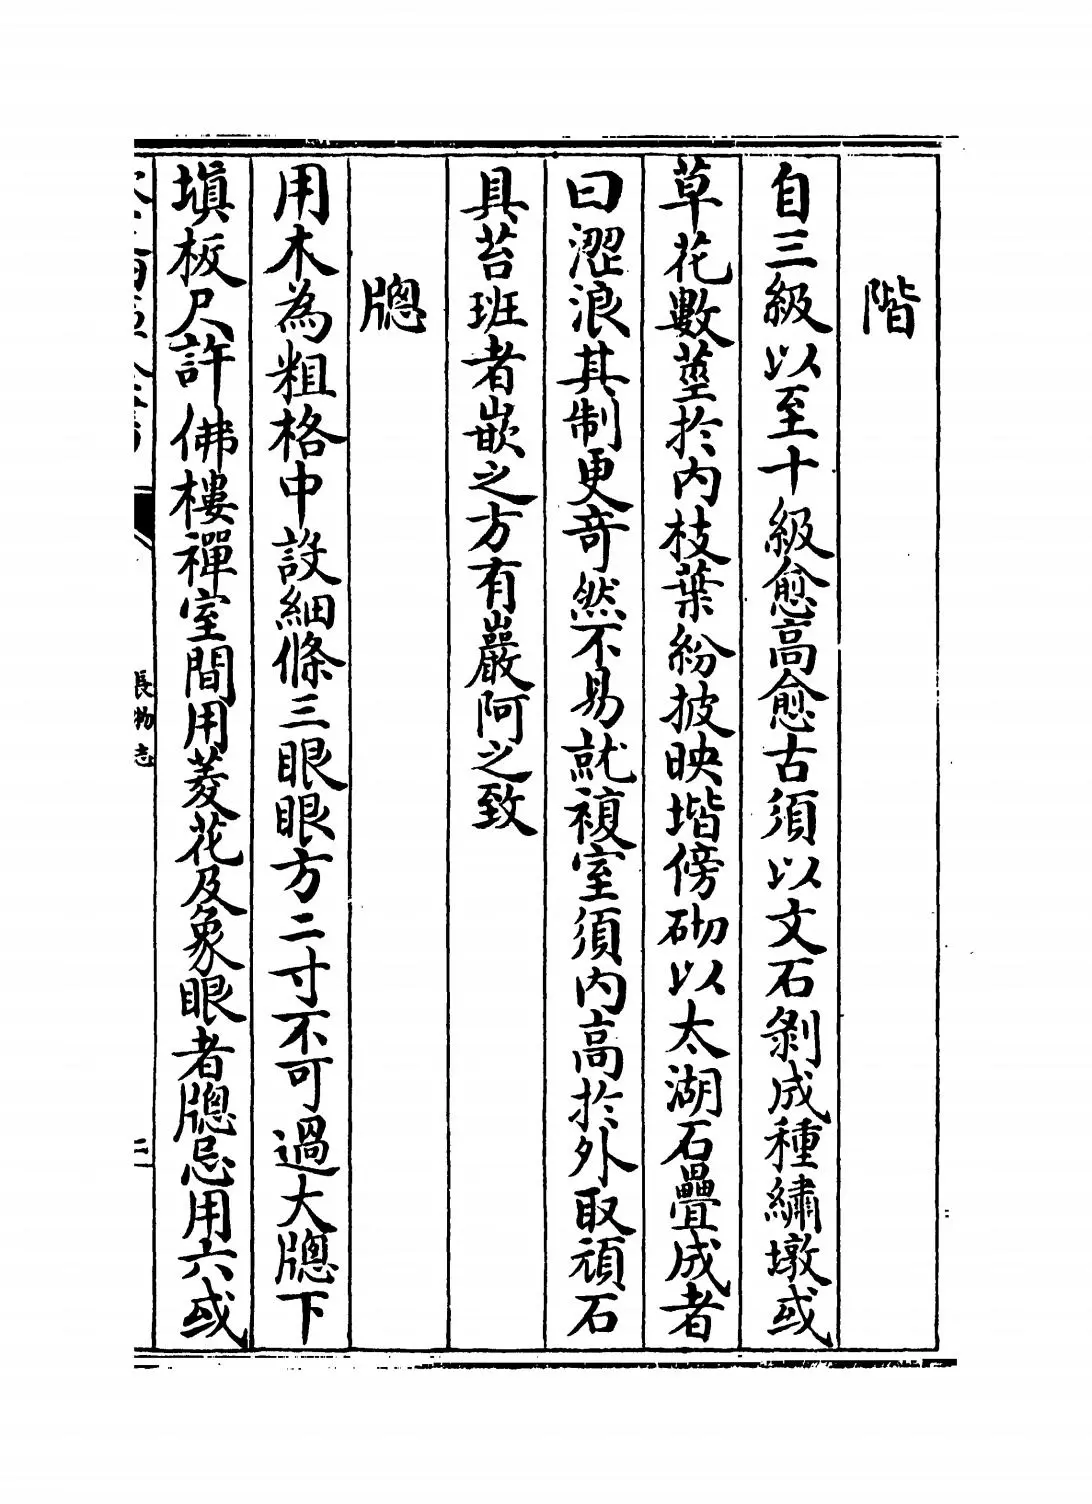 階
自三級以至十級愈高愈古須以文石剝成種繡墩或
草花數莖於内枝葉紛披映堦傍砌以太湖石疊成者
曰澀浪其制更竒然不易就複室須内高於外取頑石
具苔班者嵌之方有巖阿之致
牎
用木為粗格中設細條三眼眼方二寸不可過大牎下
填板尺許佛樓禪室間用菱花及象眼者牎忌用六或
長物志
三